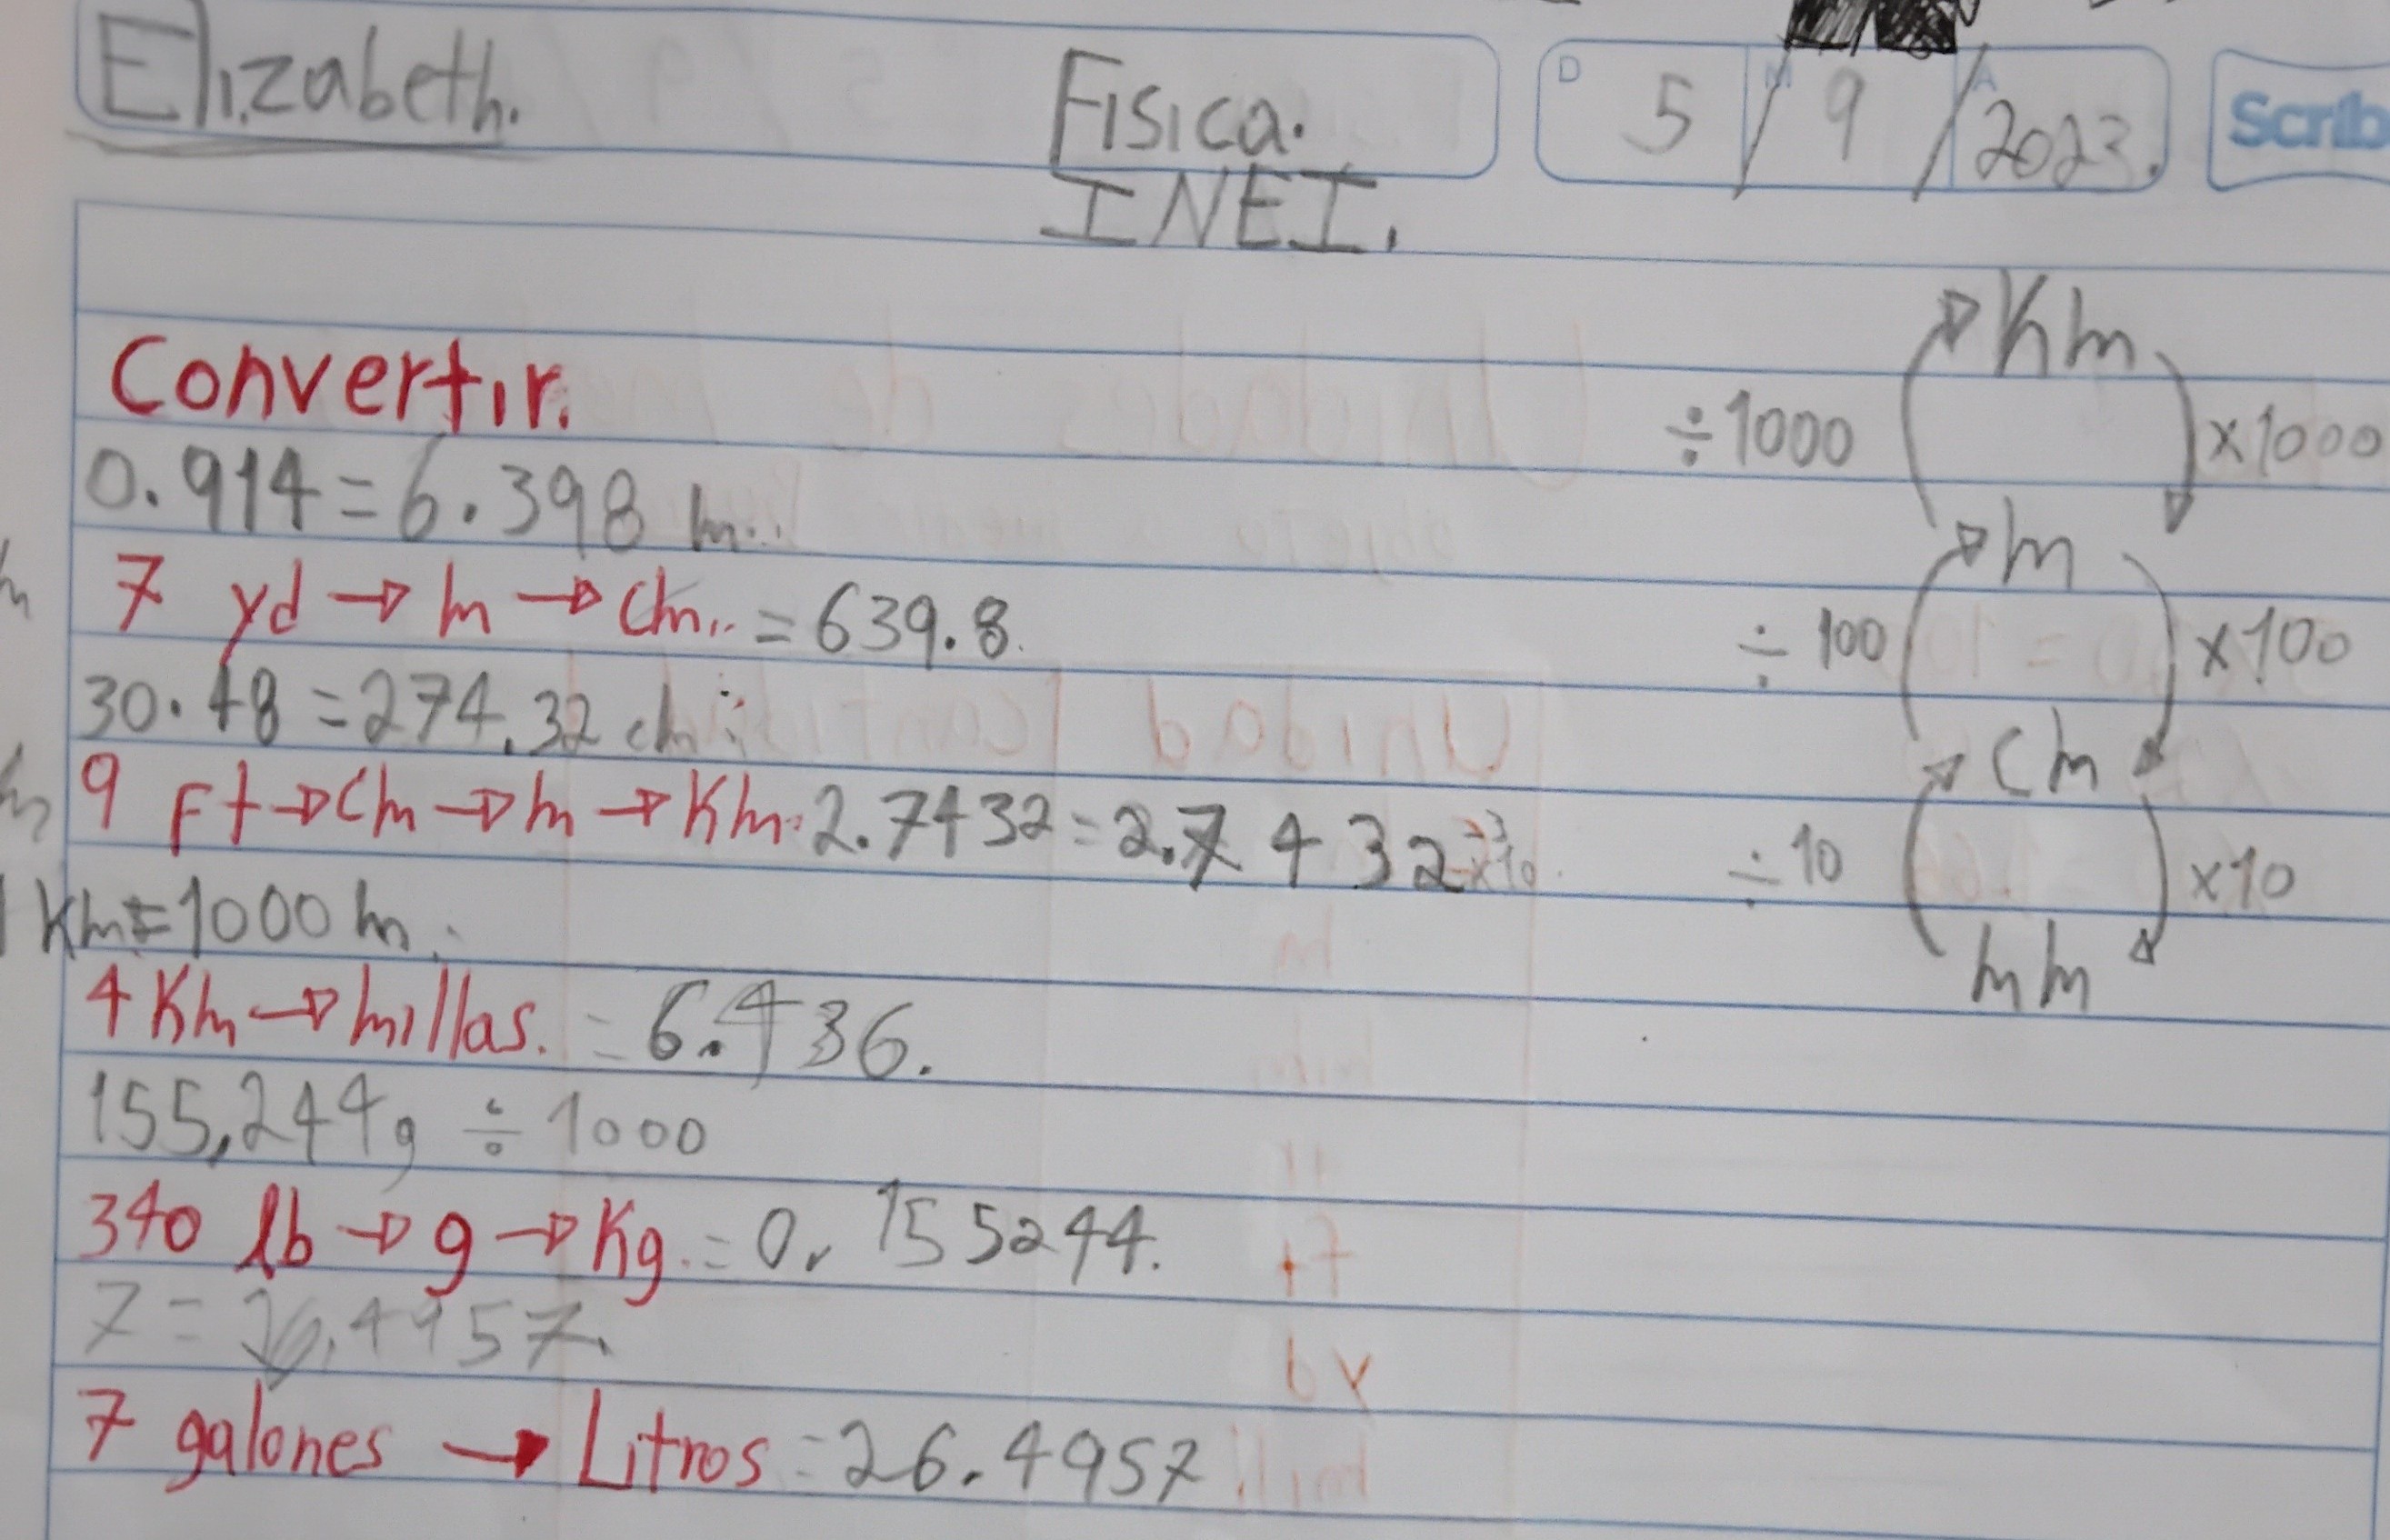 Elizabeth.
Fisica.
D 5 / M 9 / A 2023.
Scrib
INEI.
Convertir.
0.914 = 6.398 m..
7 yd → m → Cm.. = 639.8.
30.48 = 274.32 cm
9 Ft → Cm → m → Km. 2.7432 = 2.7432 x10⁻³.
1 Km = 1000 m.
4 Km → millas. = 6.436.
155,244g ÷ 1000
340 lb → g → Kg. = 0.155244.
7 = 26.4957.
7 galones → Litros = 26.4957
Km
÷1000 x1000
m
÷ 100 x100
Cm
÷ 10 x10
mm